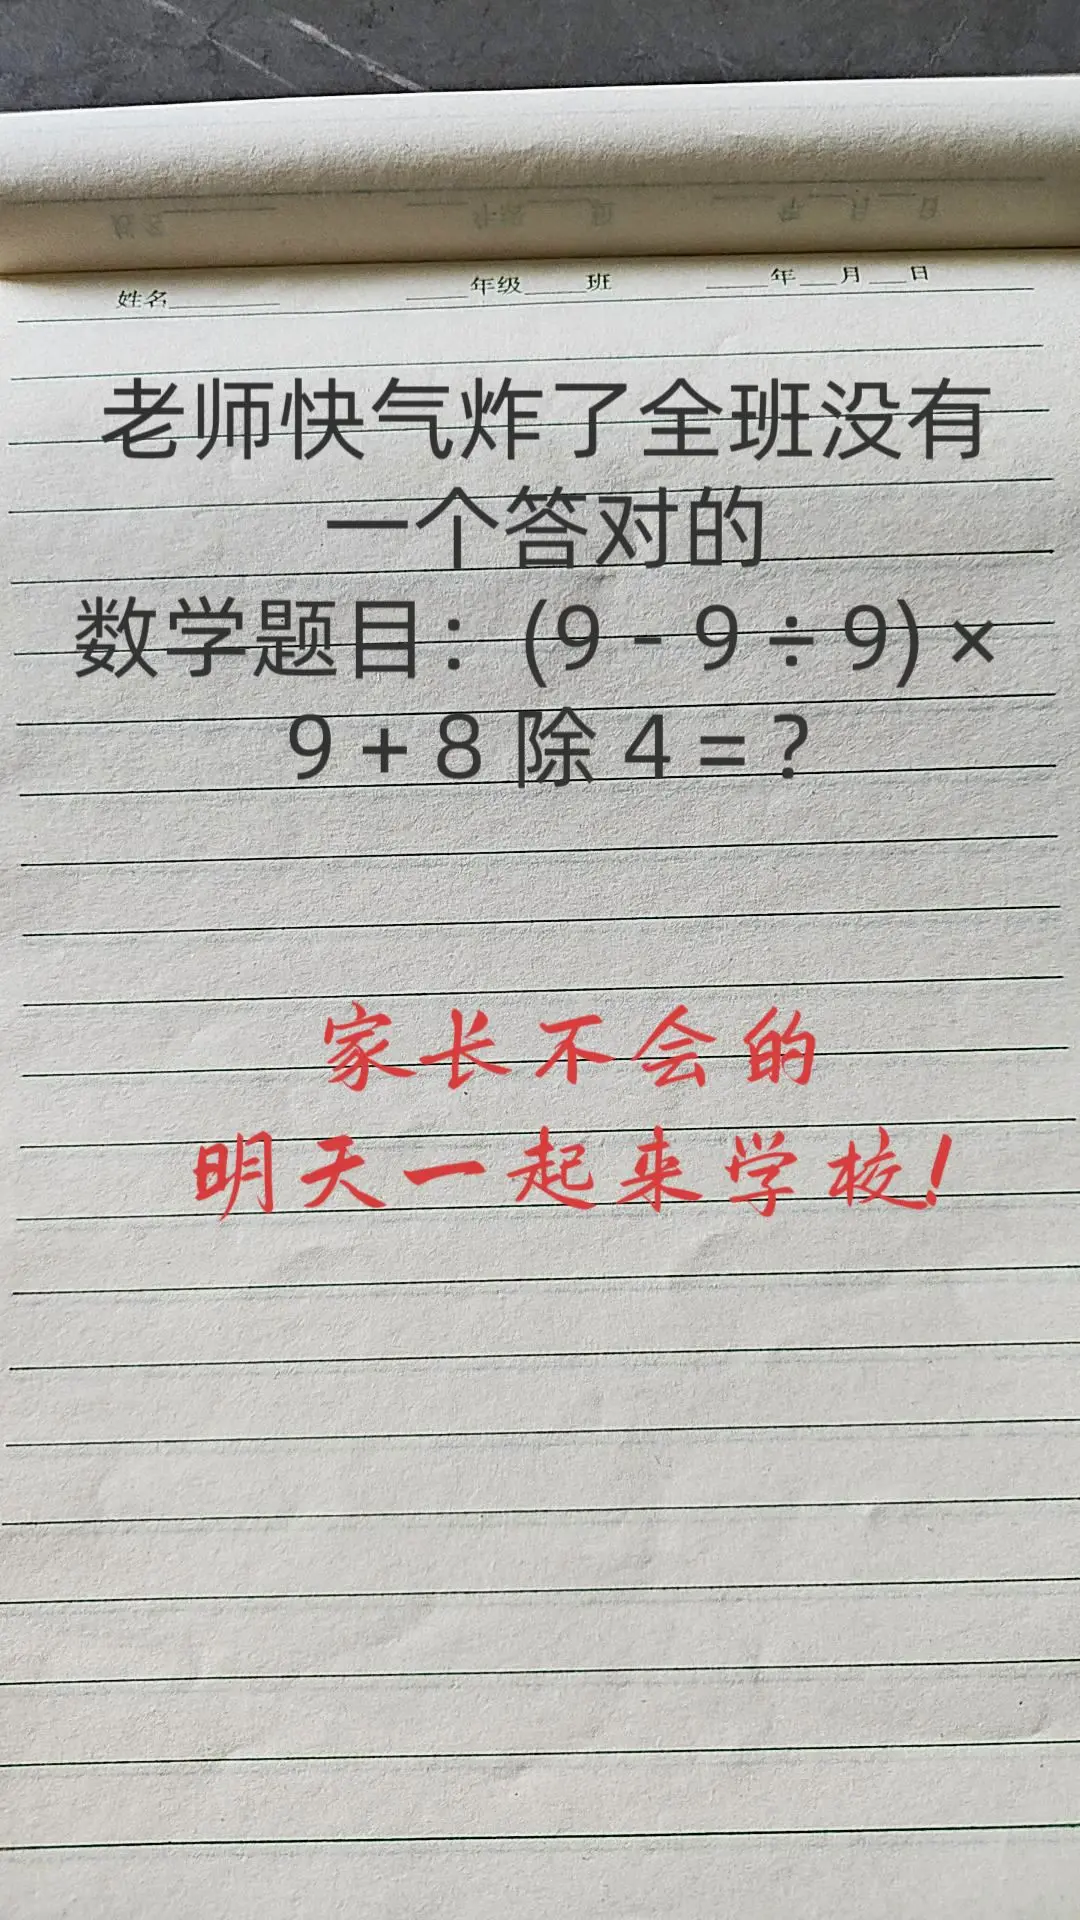 姓名________ ____年级____班 ____年__月__日
老师快气炸了全班没有
一个答对的
数学题目：(9 - 9 ÷ 9) ×
9 + 8 除 4 = ?
家长不会的
明天一起来学校！